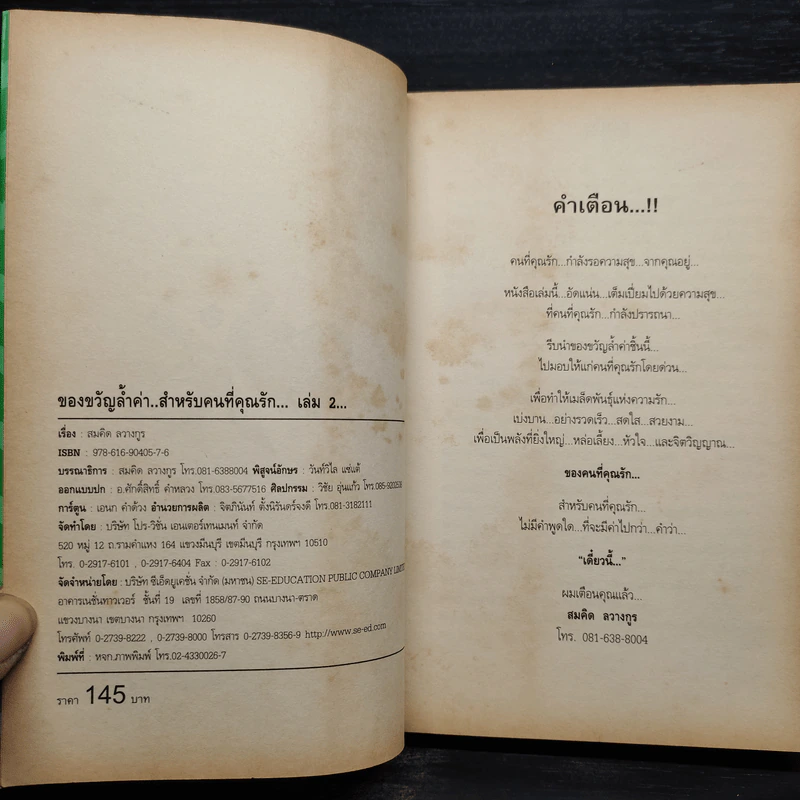 ของขวัญล้ำค่า..สำหรับคนที่คุณรัก... เล่ม 2...
เรื่อง : สมคิด ลวางกูร
ISBN : 978-616-90405-7-6
บรรณาธิการ : สมคิด ลวางกูร โทร.081-6388004 พิสูจน์อักษร : วันทวิไล แซ่แต้
ออกแบบปก : อ.ศักดิ์สิทธิ์ คำหลวง โทร.083-5677516 ศิลปกรรม : วิชัย อุ่นแก้ว
การ์ตูน : เอนก คำด้วง อำนวยการผลิต : จิตภินันท์ ตั้งนิรันดร์จงดี โทร.081-3182111
จัดทำโดย : บริษัท โปร-วิชั่น เอนเตอร์เทนเมนท์ จำกัด
520 หมู่ 12 ถ.รามคำแหง 164 แขวงมีนบุรี เขตมีนบุรี กรุงเทพฯ 10510
โทร. 0-2917-6101 , 0-2917-6404 Fax : 0-2917-6102
จัดจำหน่ายโดย : บริษัท ซีเอ็ดยูเคชั่น จำกัด (มหาชน) SE-EDUCATION PUBLIC COMPANY
อาคารเนชั่นทาวเวอร์ ชั้นที่ 19 เลขที่ 1858/87-90 ถนนบางนา-ตราด
แขวงบางนา เขตบางนา กรุงเทพฯ 10260
โทรศัพท์ 0-2739-8222 , 0-2739-8000 โทรสาร 0-2739-8356-9 http://www.se-ed.com
พิมพ์ที่ : หจก.ภาพพิมพ์ โทร.02-4330026-7
ราคา 145 บาท
คำเตือน...!!
คนที่คุณรัก...กำลังรอความสุข...จากคุณอยู่...
หนังสือเล่มนี้...อัดแน่น...เต็มเปี่ยมไปด้วยความสุข...
ที่คนที่คุณรัก...กำลังปรารถนา...
รีบนำของขวัญล้ำค่าชิ้นนี้...
ไปมอบให้แก่คนที่คุณรักโดยด่วน...
เพื่อทำให้เมล็ดพันธุ์แห่งความรัก...
เบ่งบาน...อย่างรวดเร็ว...สดใส...สวยงาม...
เพื่อเป็นพลังที่ยิ่งใหญ่...หล่อเลี้ยง...หัวใจ...และจิตวิญญาณ...
ของคนที่คุณรัก...
สำหรับคนที่คุณรัก...
ไม่มีคำพูดใด...ที่จะมีค่าไปกว่า...คำว่า...
"เดี๋ยวนี้..."
ผมเตือนคุณแล้ว...
สมคิด ลวางกูร
โทร. 081-638-8004